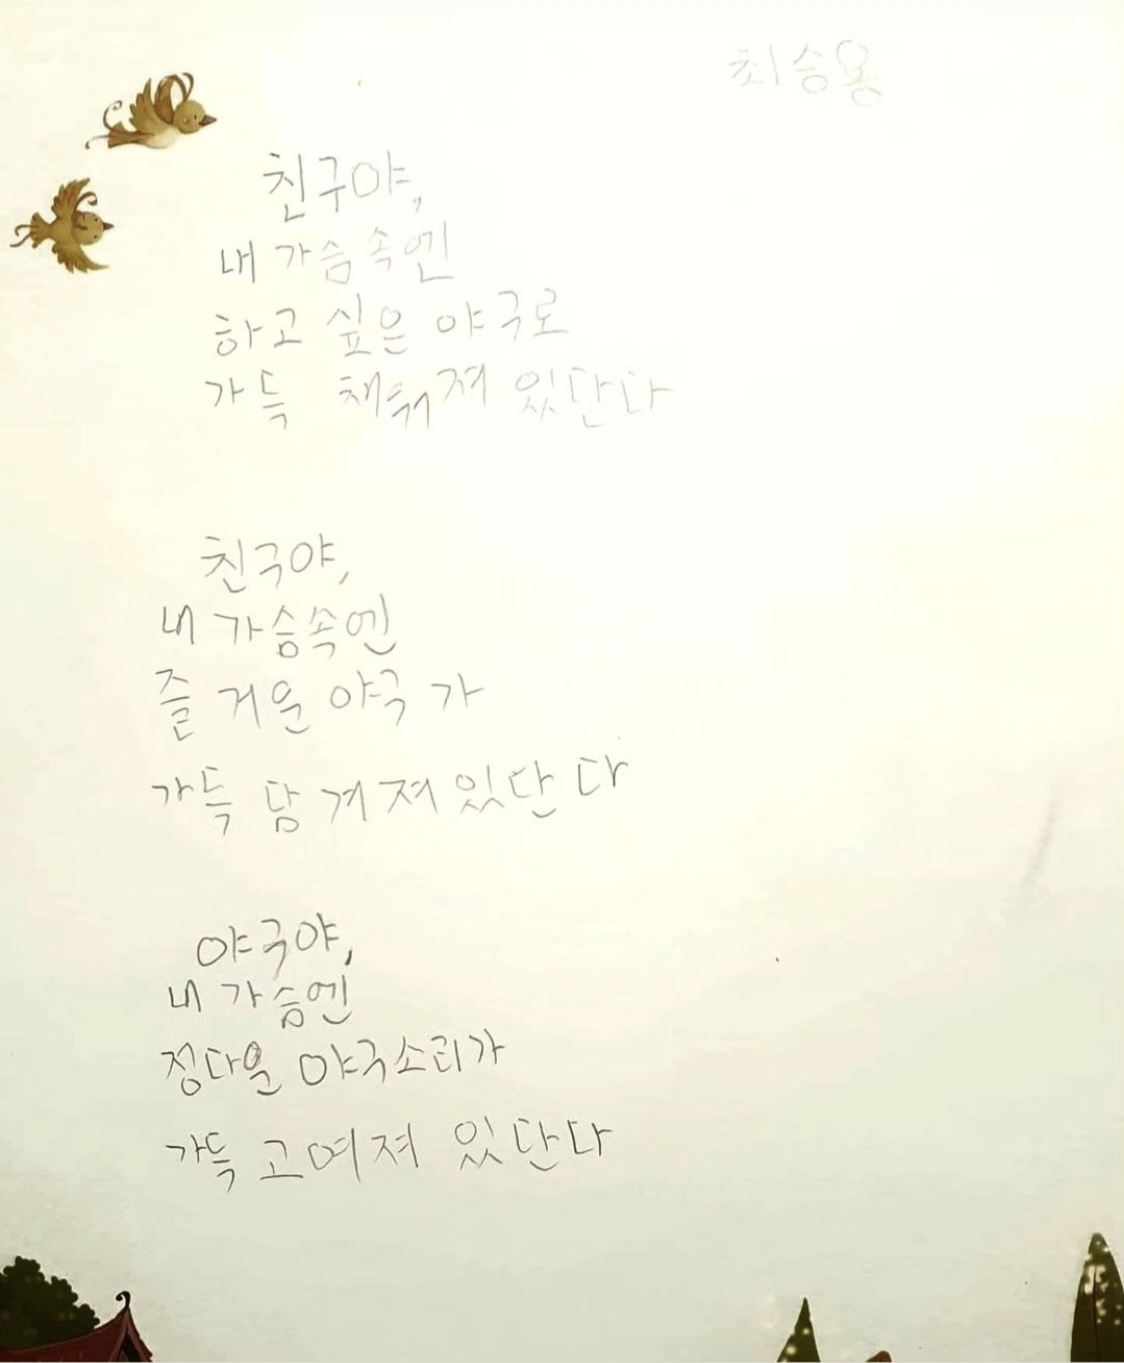 최승용
친구야,
내 가슴속엔
하고 싶은 야구로
가득 채워져 있단다
친구야,
내 가슴속엔
즐거운 야구가
가득 담겨져 있단다
야구야,
내 가슴엔
정다운 야구소리가
가득 고여져 있단다